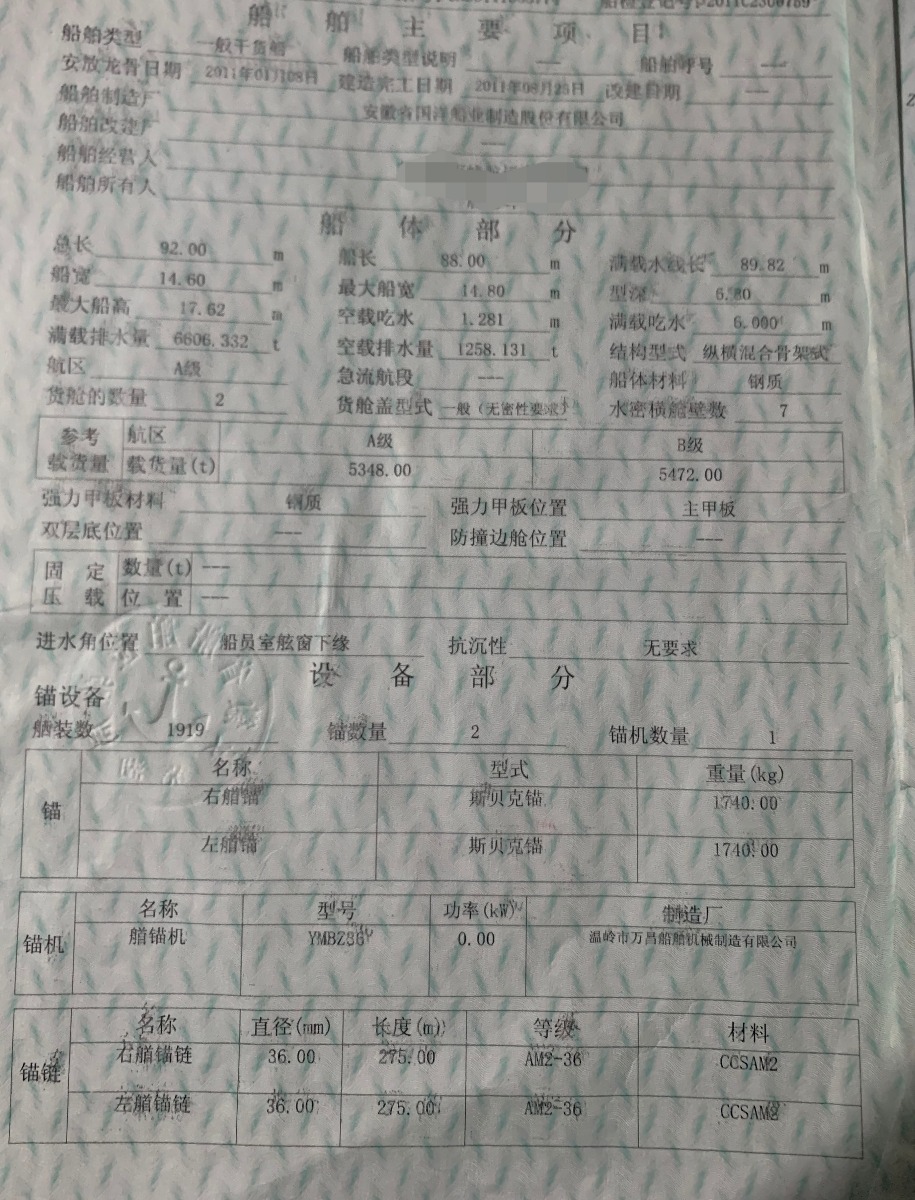 船检登记号
船 舶 主 要 项 目
船舶类型 一般干货船 船舶类型说明 --- 船舶呼号 ---
安放龙骨日期 2011年01月08日 建造完工日期 2011年08月25日 改建日期 ---
船舶制造厂 安徽省国洋船业制造股份有限公司
船舶改建厂 ---
船舶经营人
船舶所有人
船 体 部 分
总长 92.00 m 船长 88.00 m 满载水线长 89.82 m
船宽 14.60 m 最大船宽 14.80 m 型深 6.80 m
最大船高 17.62 m 空载吃水 1.281 m 满载吃水 6.000 m
满载排水量 6606.332 t 空载排水量 1258.131 t 结构型式 纵横混合骨架式
航区 A级 急流航段 --- 船体材料 钢质
货舱的数量 2 货舱盖型式 一般（无密性要求） 水密横舱壁数 7
参考 航区 A级 B级
载货量 载货量(t) 5348.00 5472.00
强力甲板材料 钢质 强力甲板位置 主甲板
双层底位置 --- 防撞边舱位置 ---
固 定 数量(t) ---
压 载 位 置 ---
进水角位置 船员室舷窗下缘 抗沉性 无要求
设 备 部 分
锚设备
舾装数 1919 锚数量 2 锚机数量 1
名称 型式 重量(kg)
锚 右艏锚 斯贝克锚 1740.00
左艏锚 斯贝克锚 1740.00
名称 型号 功率(kW) 制造厂
锚机 艏锚机 YMBZ36 0.00 温岭市万昌船舶机械制造有限公司
名称 直径(mm) 长度(m) 等级 材料
锚链 右艏锚链 36.00 275.00 AM2-36 CCSAM2
左艏锚链 36.00 275.00 AM2-36 CCSAM2